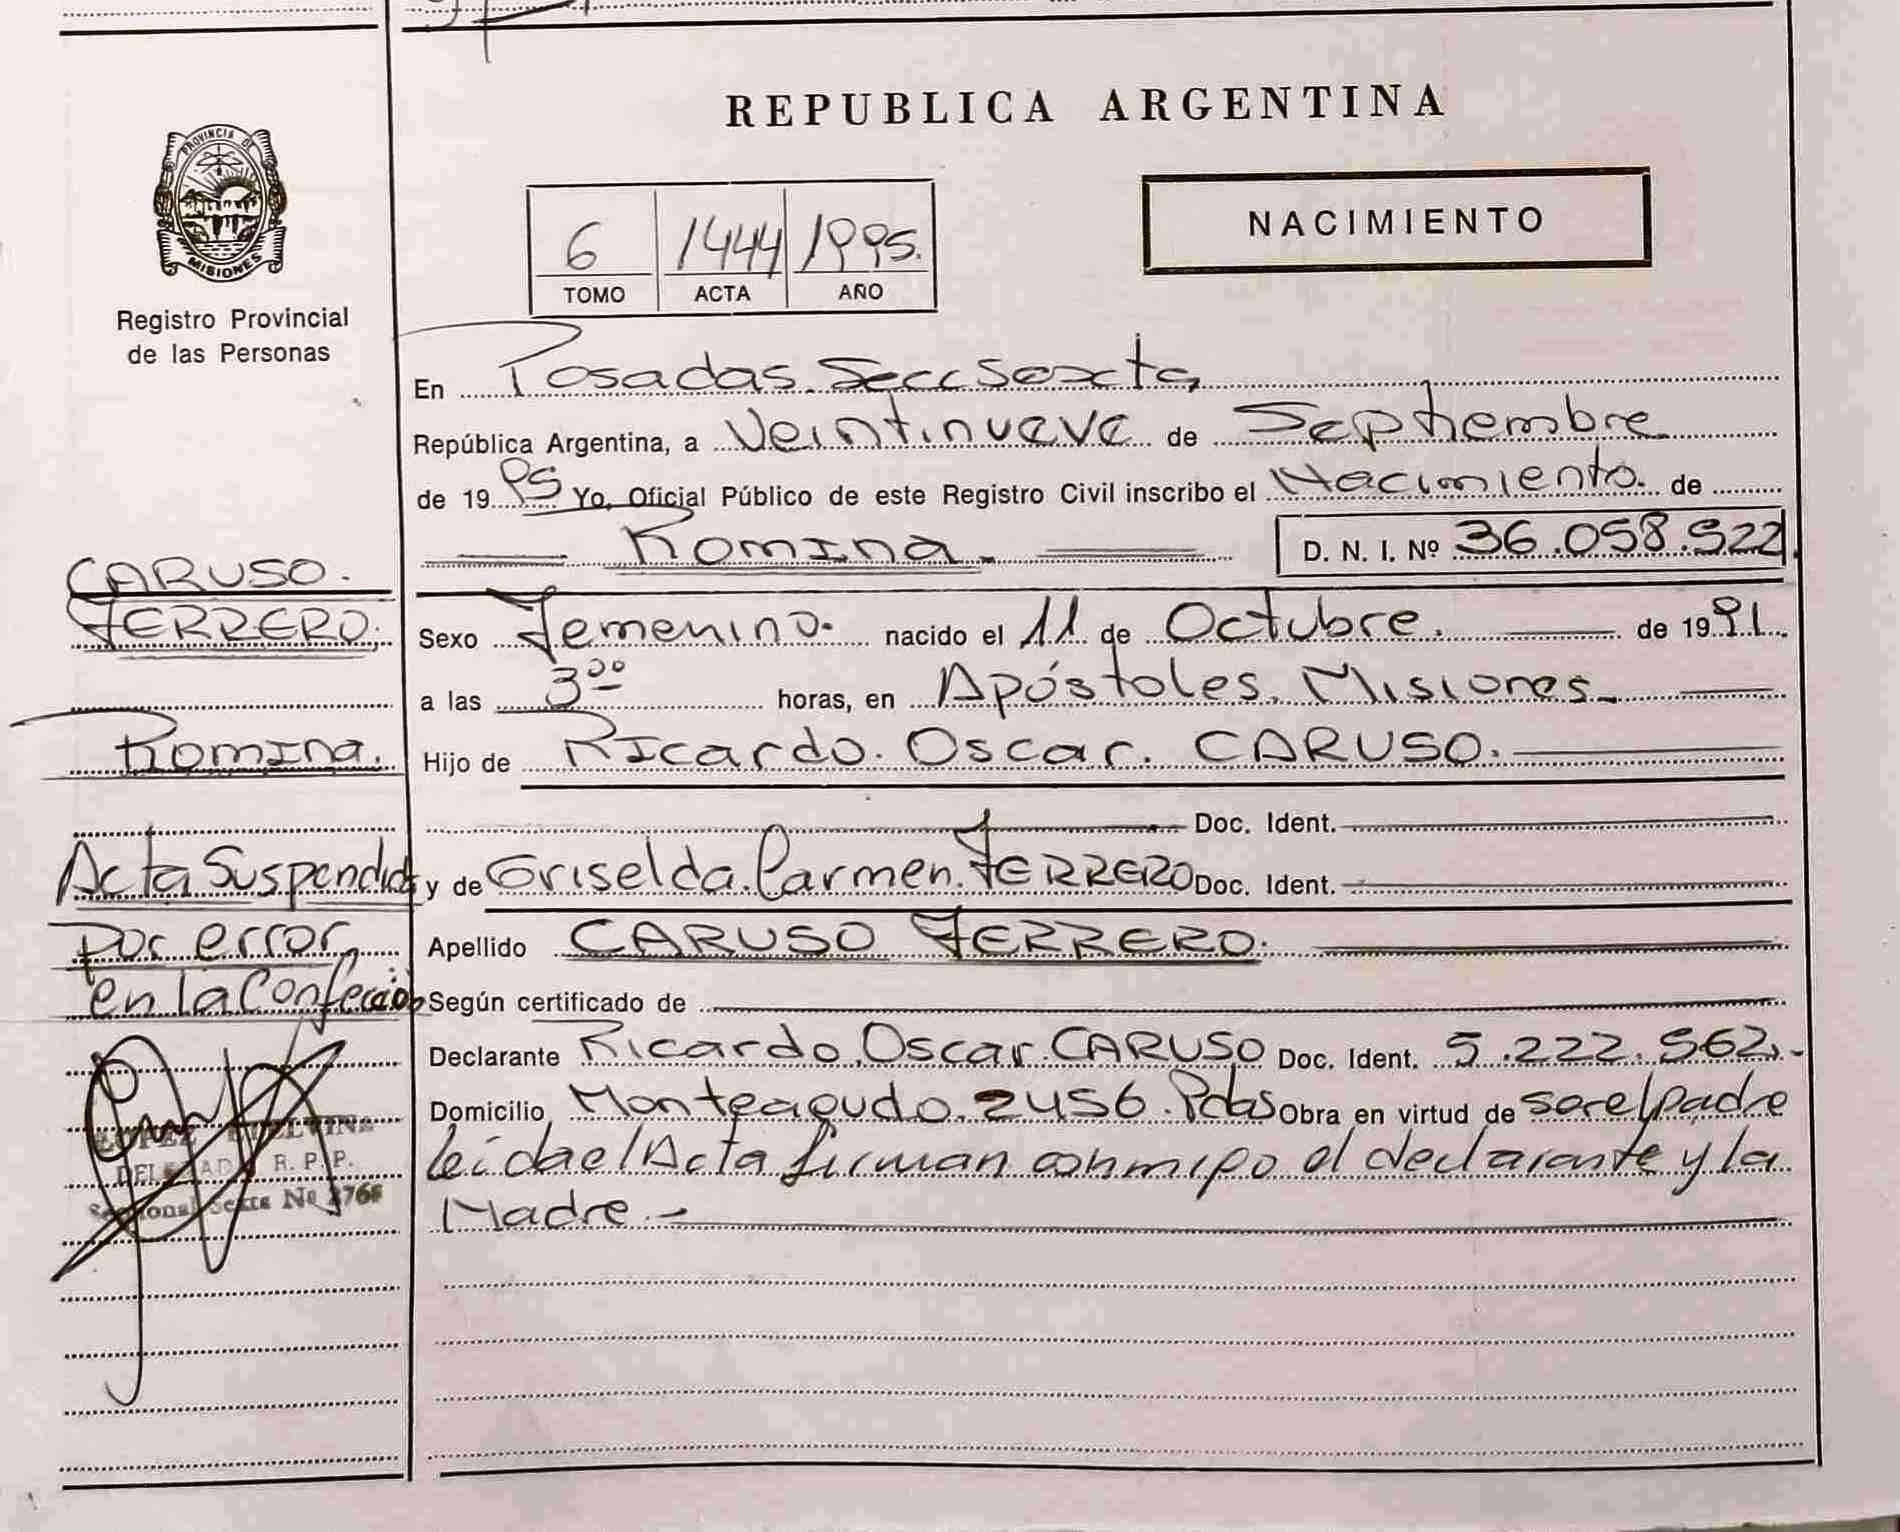 REPUBLICA ARGENTINA
PROVINCIA DE
MISIONES
Registro Provincial
de las Personas
NACIMIENTO
6 1444 1995.
TOMO ACTA AÑO
En Posadas. Secc Sexta,
República Argentina, a Veintinueve de Septiembre
de 19 95 Yo, Oficial Público de este Registro Civil inscribo el Nacimiento. de
Romina. D. N. I. Nº 36.058.522
CARUSO.
FERRERO.
Romina.
Sexo Femenino. nacido el 11 de Octubre. de 19 91.
a las 3 00 horas, en Apóstoles. Misiones.
Hijo de Ricardo. Oscar. CARUSO.
Doc. Ident.
y de Griselda. Carmen. FERRERO Doc. Ident.
Apellido CARUSO FERRERO.
Según certificado de
Declarante Ricardo. Oscar. CARUSO Doc. Ident. 5.222.562.
Domicilio Monteagudo. 2456. Pdas Obra en virtud de ser el padre
Leida el Acta firman conmigo el declarante y la
Madre.-
Acta Suspendida
por error
en la Confección
LOPEZ
R. P. P.
Seccional Sexta Nº